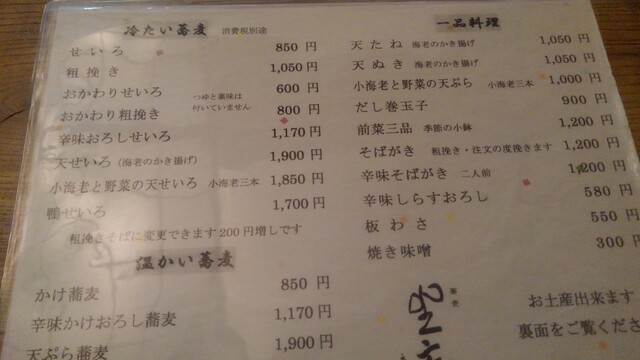 冷たい蕎麦 消費税別途
せいろ 850 円
粗挽き 1,050 円
おかわりせいろ 600 円
つゆと薬味は
付いていません
おかわり粗挽き 800 円
辛味おろしせいろ 1,170 円
天せいろ (海老のかき揚げ) 1,900 円
小海老と野菜の天せいろ 小海老三本 1,850 円
鴨せいろ 1,700 円
粗挽きそばに変更できます200円増しです
温かい蕎麦
かけ蕎麦 850 円
辛味かけおろし蕎麦 1,170 円
天ぷら蕎麦 1,900 円
一品料理
天たね 海老のかき揚げ 1,050 円
天ぬき 海老のかき揚げ 1,050 円
小海老と野菜の天ぷら 小海老三本 1,000 円
だし巻玉子 900 円
前菜三品 季節の小鉢 1,200 円
そばがき 粗挽き・注文の度挽きます 1,200 円
辛味そばがき 二人前 1,200 円
辛味しらすおろし 580 円
板わさ 550 円
焼き味噌 300 円
蕎麦
お土産出来ます
裏面をご覧くださ